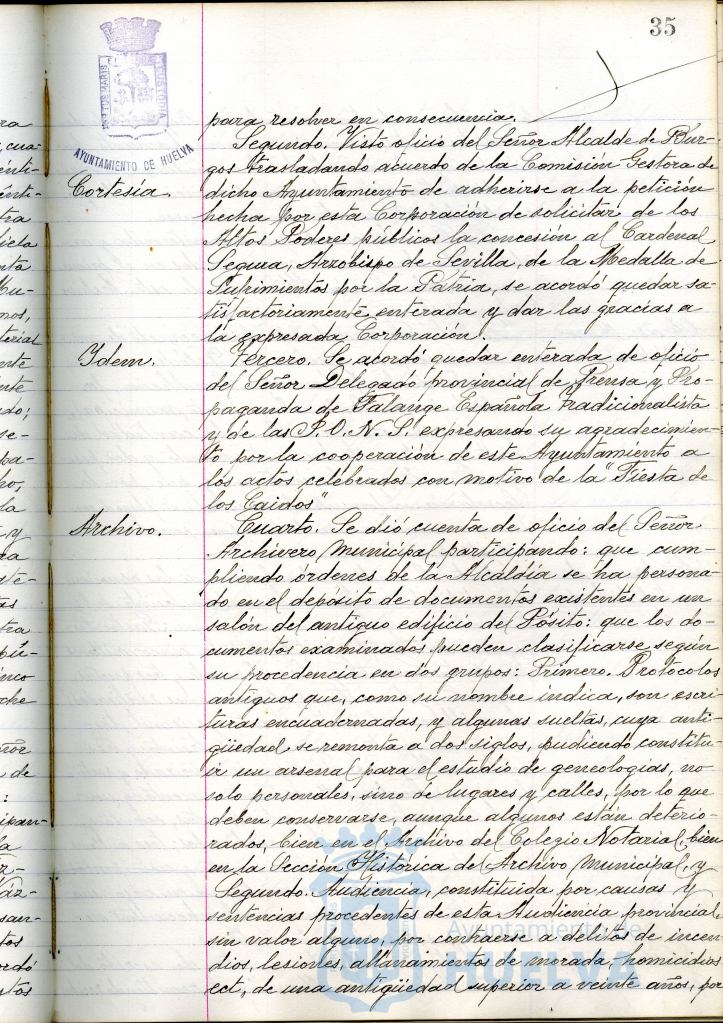 35
PORTUS MARIS
CUSTODIA
AYUNTAMIENTO DE HUELVA
para resolver en consecuencia.
Cortesía.
Segundo. Visto oficio del Señor Alcalde de Bur-
gos trasladando acuerdo de la Comisión Gestora de
dicho Ayuntamiento de adherirse a la petición
hecha por esta Corporación de solicitar de los
Altos Poderes públicos la concesión al Cardenal
Segura, Arzobispo de Sevilla, de la Medalla de
Sufrimientos por la Patria, se acordó quedar sa-
tisfactoriamente enterada y dar las gracias a
la expresada Corporación.
Ydem.
Tercero. Se acordó quedar enterada de oficio
del Señor Delegado provincial de Prensa y Pro-
paganda de Falange Española Tradicionalista
y de las J.O.N.S. expresando su agradecimien-
to por la cooperación de este Ayuntamiento a
los actos celebrados con motivo de la "Fiesta de
los Caidos"
Archivo.
Cuarto. Se dió cuenta de oficio del Señor
Archivero Municipal participando: que cum-
pliendo órdenes de la Alcaldía se ha persona-
do en el depósito de documentos existentes en un
salón del antiguo edificio del Pósito: que los do-
cumentos examinados pueden clasificarse, según
su procedencia en dos grupos: Primero. Protocolos
antiguos que, como su nombre indica, son escri-
turas encuadernadas, y algunas sueltas, cuya anti-
güedad se remonta a dos siglos, pudiendo constitu-
ir un arsenal para el estudio de geneologias, no
solo personales, sino de lugares y calles, por lo que
deben conservarse, aunque algunos están deterio-
rados, bien en el Archivo del Colegio Notarial, bien
en la Sección Histórica del Archivo Municipal, y
Segundo. Audiencia, constituida por causas y
sentencias procedentes de esta Audiencia provincial
sin valor alguno, por contraerse a delitos de incen-
dios, lesiones, allanamientos de morada, homicidios
ect, de una antigüedad superior a veinte años, por
Ayuntamiento de
HUELVA